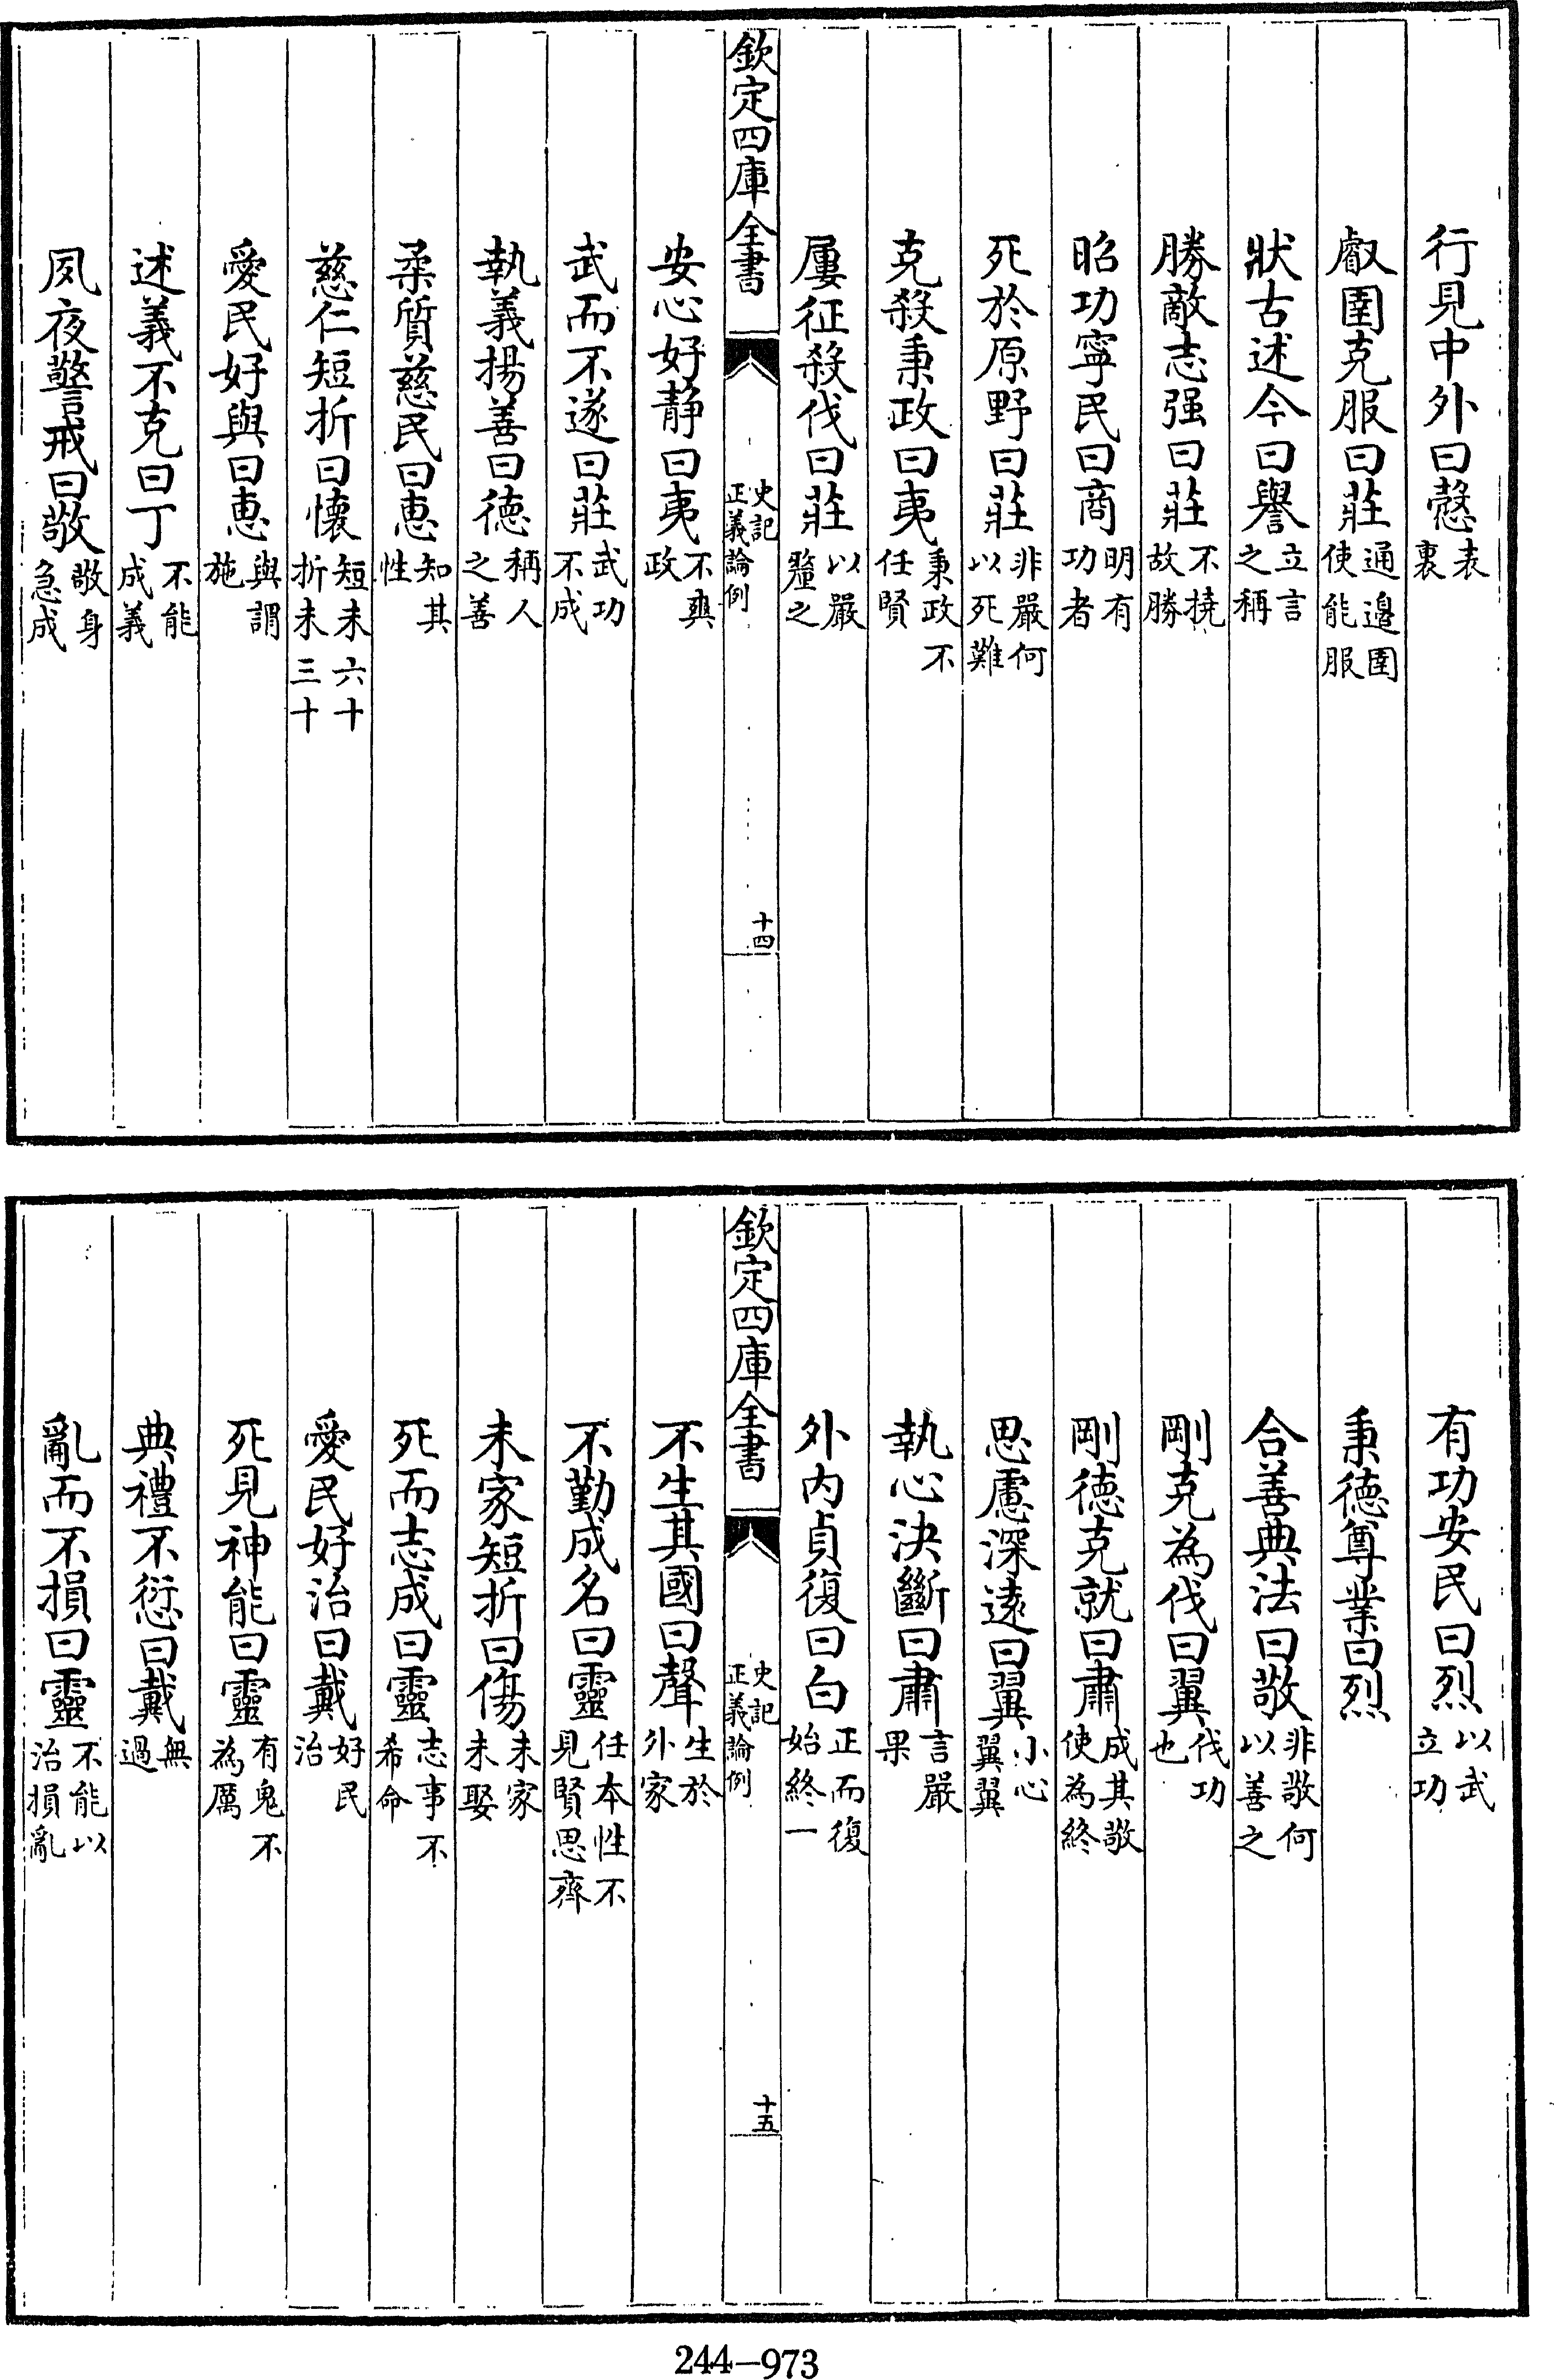 行見中外曰慤表裏
叡圉克服曰莊通邉圉使能服
狀古述今曰譽立言之稱
勝敵志强曰莊不撓故勝
昭功寧民曰商明有功者
死於原野曰莊非嚴何以死難
克殺秉政曰夷秉政不任賢
屢征殺伐曰莊以嚴釐之
欽定四庫全書
史記正義論例
十四
安心好静曰夷不爽政
武而不遂曰莊武功不成
執義揚善曰徳稱人之善
柔質慈民曰恵知其性
慈仁短折曰懷短未六十折未三十
愛民好與曰恵與謂施
述義不克曰丁不能成義
夙夜警戒曰敬敬身急成
有功安民曰烈以武立功
秉徳尊業曰烈
合善典法曰敬非敬何以善之
剛克為伐曰翼伐功也
剛徳克就曰肅成其敬使為終
思慮深逺曰翼小心翼翼
執心決斷曰肅言嚴果
外内貞復曰白正而復始終一
欽定四庫全書
史記正義論例
十五
不生其國曰聲生於外家
不勤成名曰靈任本性不見賢思齊
未家短折曰傷未家未娶
死而志成曰靈志事不希命
愛民好治曰戴好民治
死見神能曰靈有鬼不為厲
典禮不愆曰戴無過
亂而不損曰靈不能以治損亂
244-973